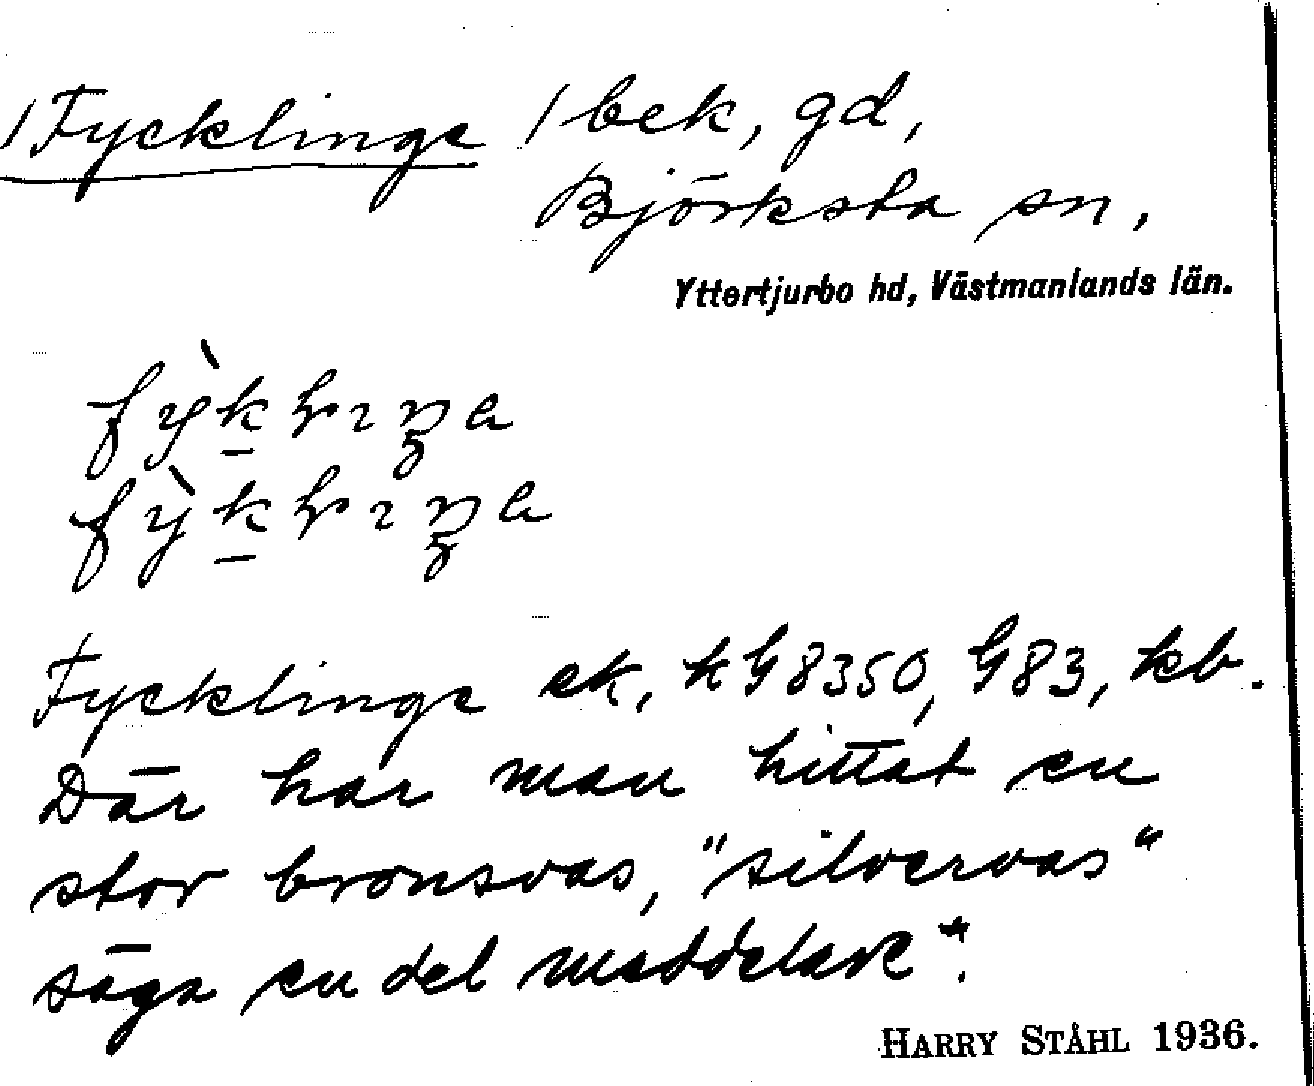 /Fycklinge / bek, gd,
Björksta sn,
Yttertjurbo hd, Västmanlands län.
Fycklinge ek, hG 8350, G83, kb.
Där har man hittat en
stor bronsvas, "silvervas"
säga en del meddelare".
HARRY STÅHL 1936.